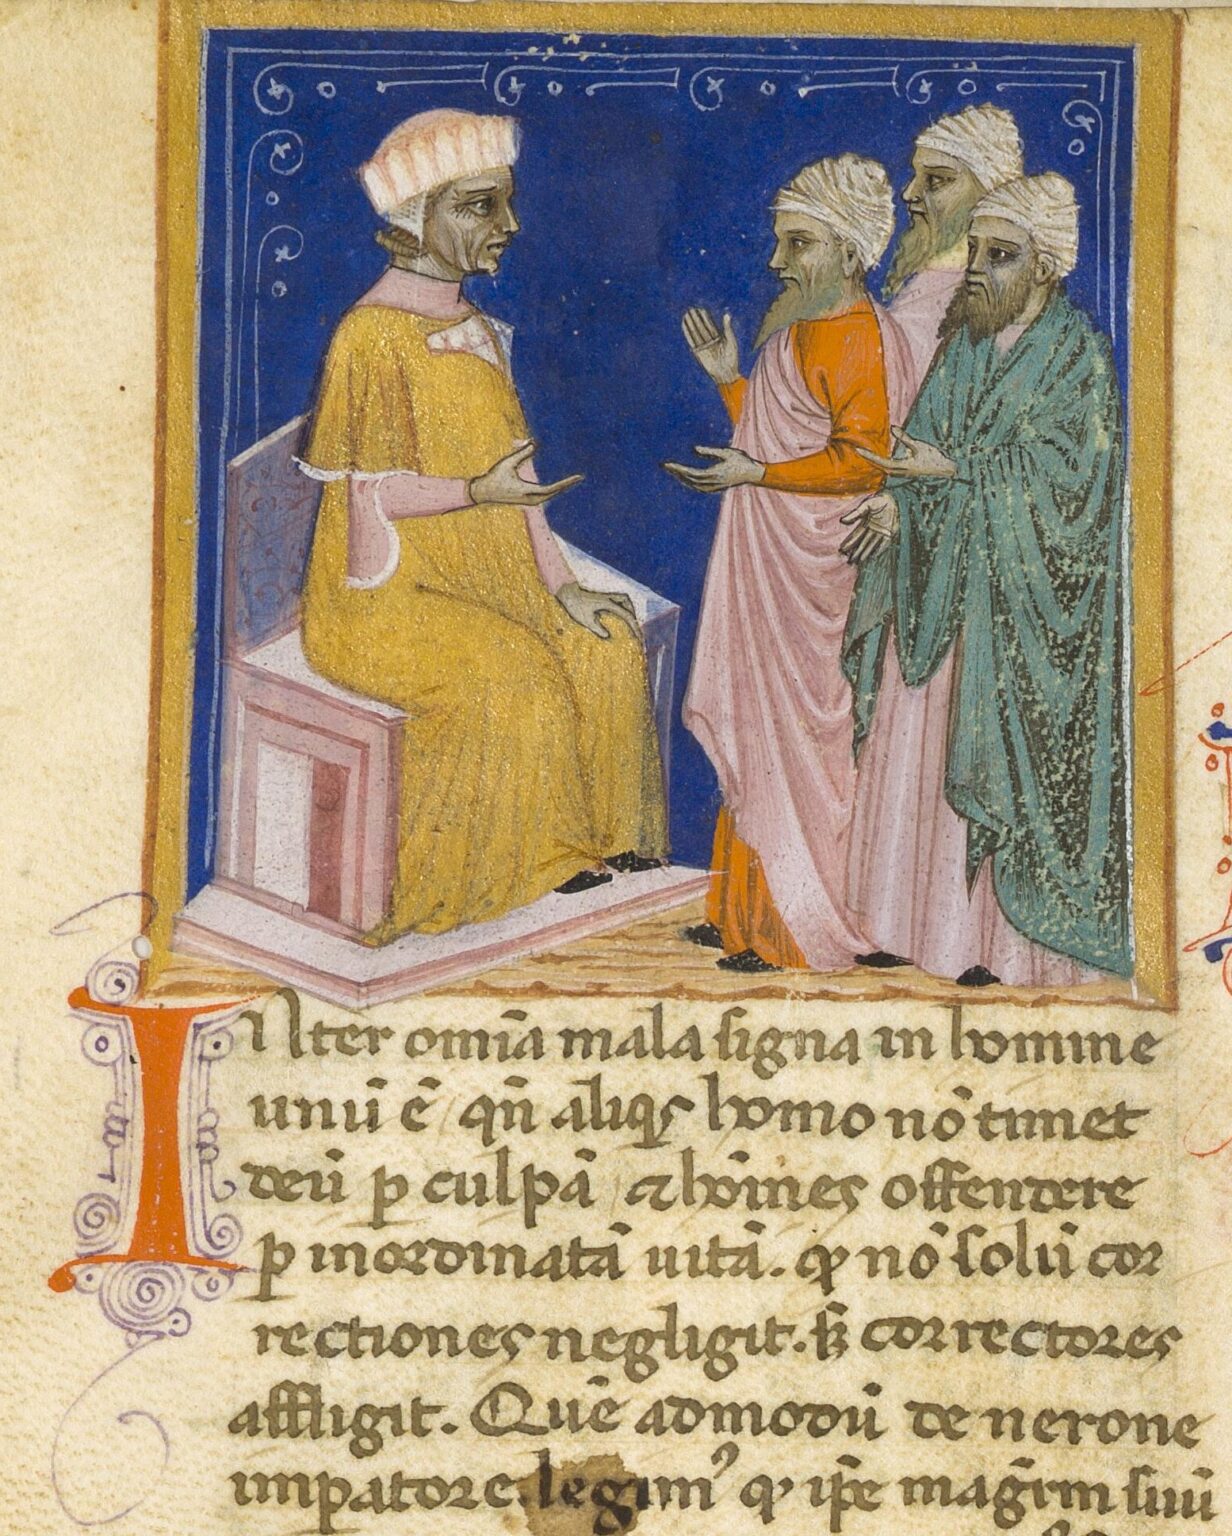 INter om̄ia mala signa in homine
unū ē qn̄ aliqs homo nō timet
deū ꝑ culpā ⁊ hoīnes offendere
ꝑ inordinatā uitā. ꝙ nō solū cor
rectiones negligit. sꝫ correctores
affligit. Quē admodū de nerone
impatore legimꝰ ꝙ ip̄e magr̄m suū